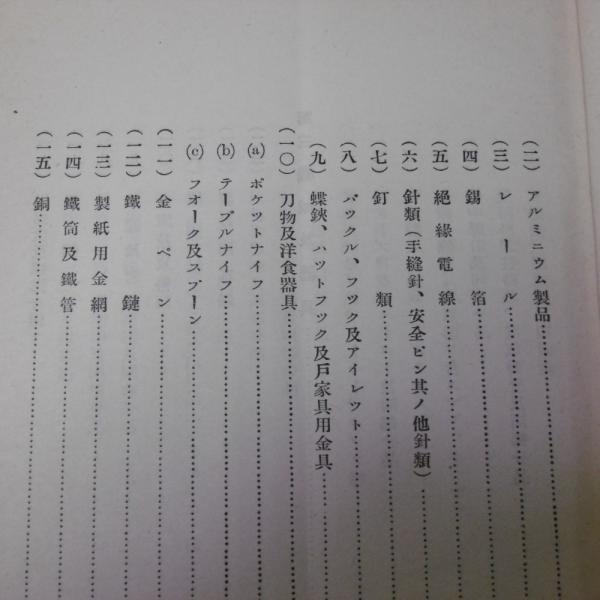 (二) アルミニウム製品……
(三) レール……
(四) 錫箔……
(五) 絕緣電線……
(六) 針類(手縫針、安全ピン其ノ他針類)……
(七) 釘類……
(八) バツクル、フツク及アイレツト……
(九) 蝶鋏、ハツトフツク及戸家具用金具……
(一〇) 刀物及洋食器具……
(a) ポケツトナイフ……
(b) テーブルナイフ……
(c) フオーク及スプーン……
(一一) 金ペン……
(一二) 鐵鏈……
(一三) 製紙用金網……
(一四) 鐵筒及鐵管……
(一五) 銅……